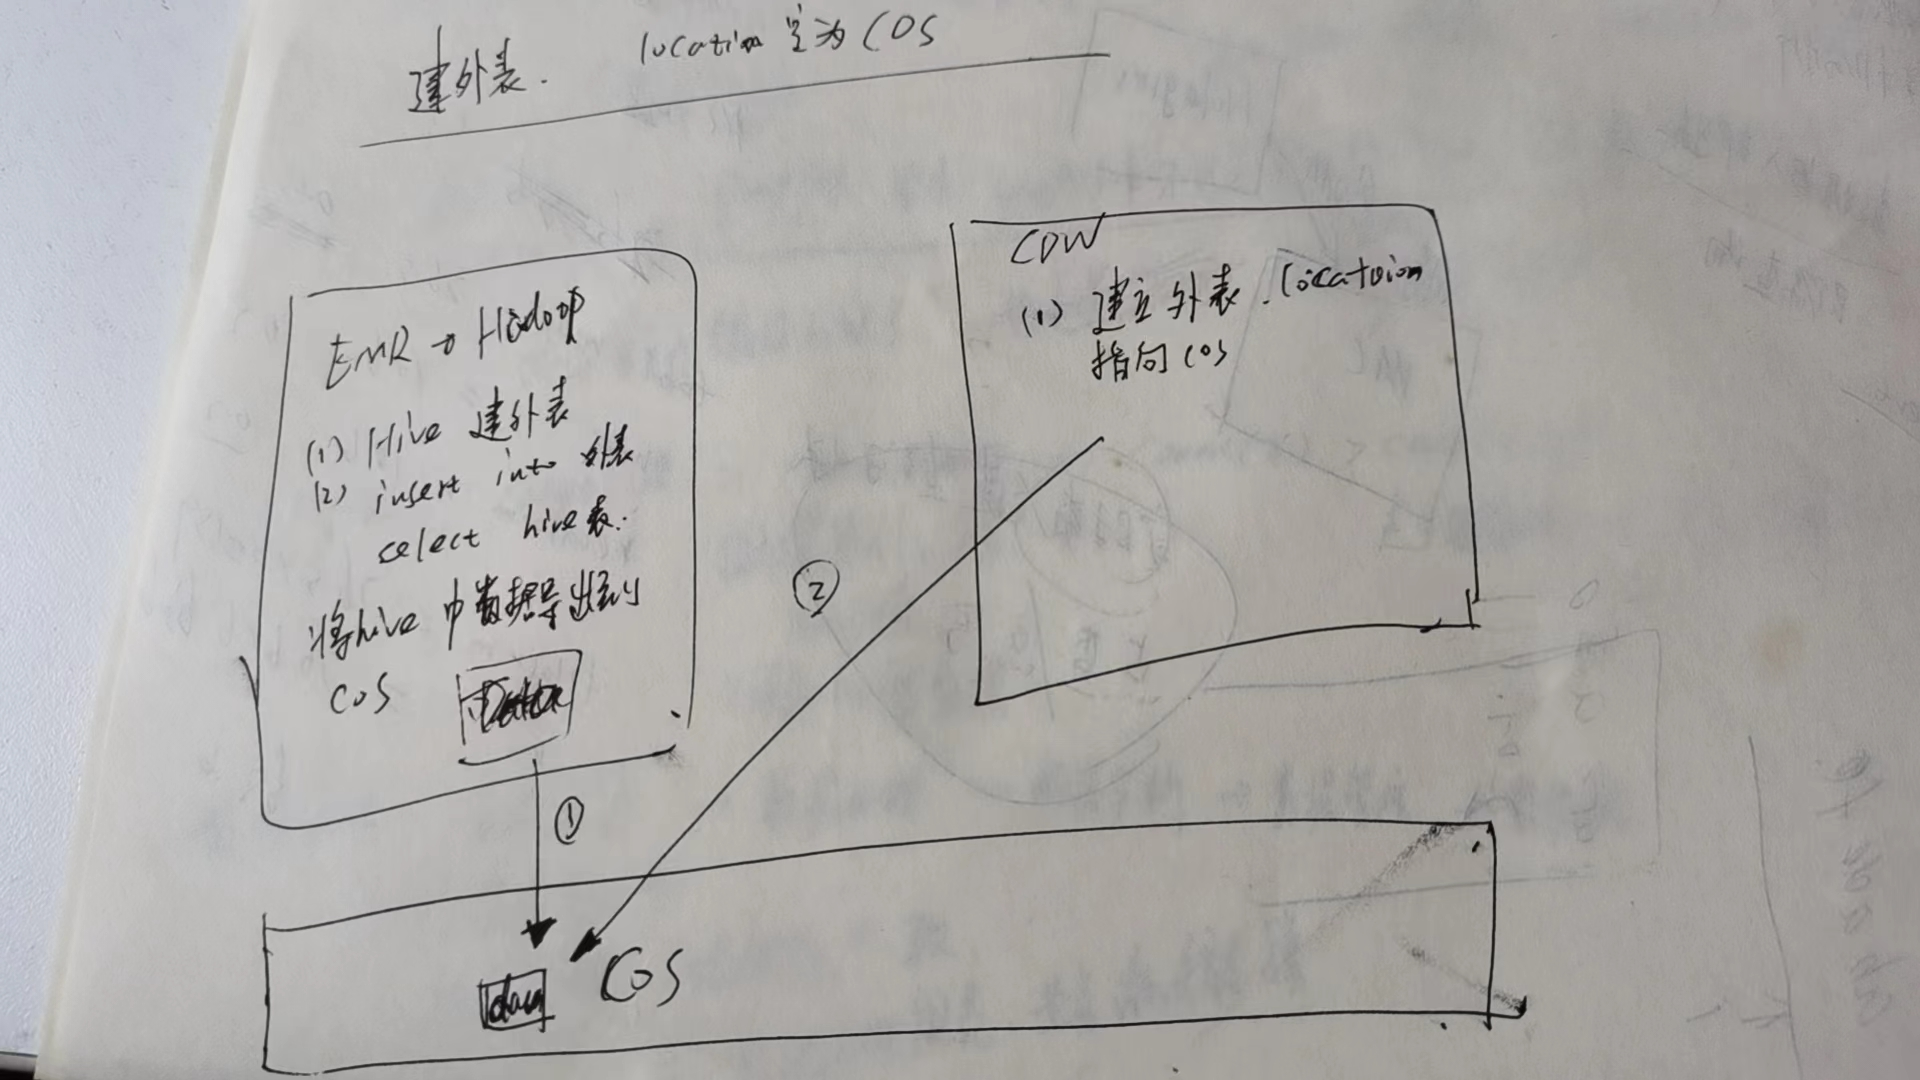 建外表. location 定为 COS
EMR → Hadoop
(1) Hive 建外表
(2) insert into 外表
select hive表.
将hive中数据导出到
COS
Data
①
CDW
(1) 建立外表. locatoion
指向 COS
②
data
COS